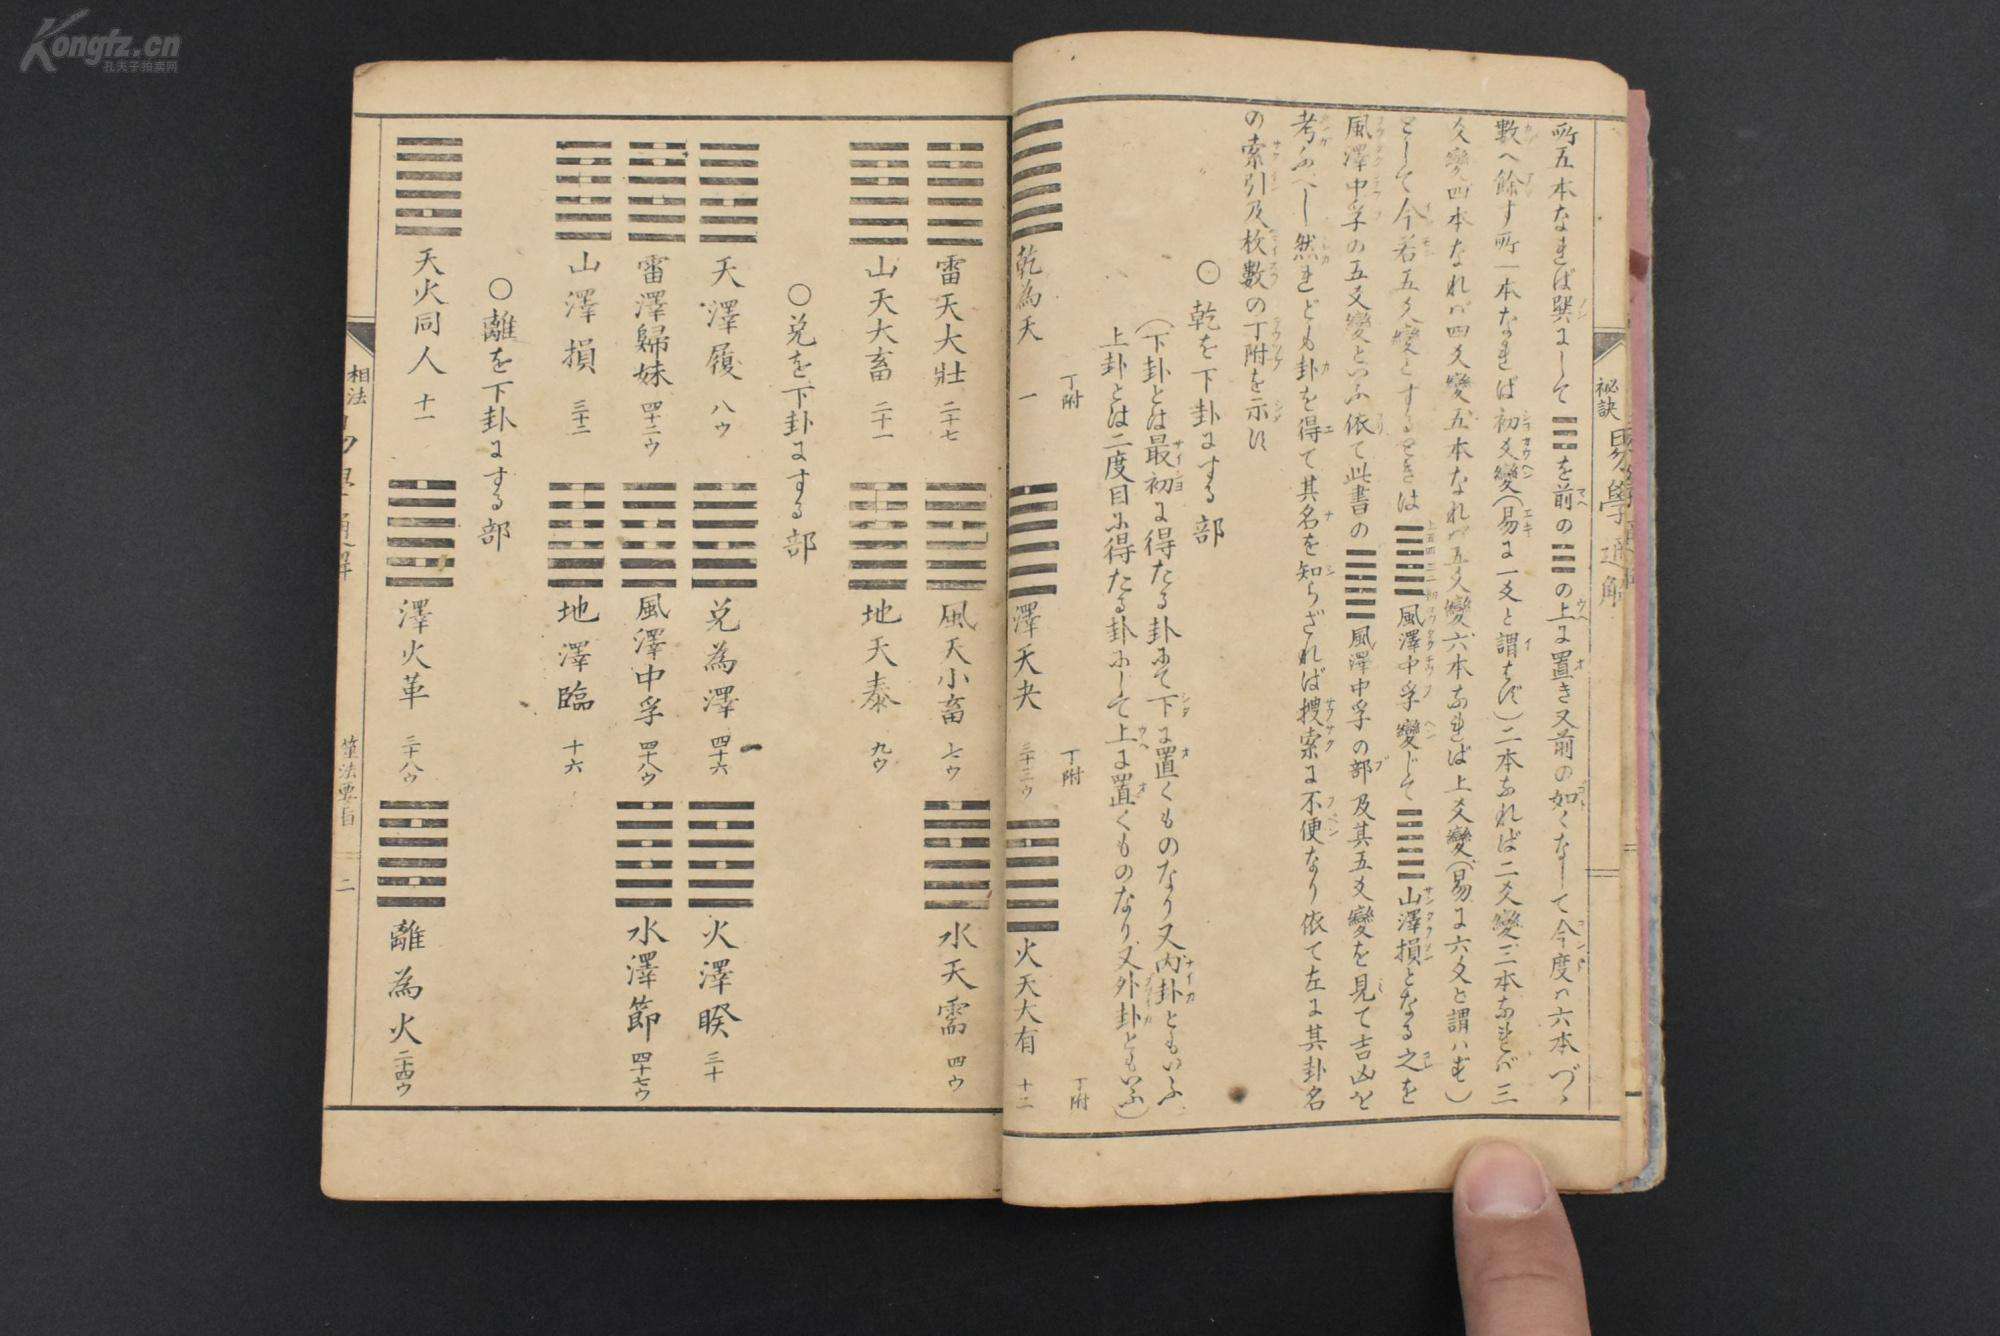 Kongfz.cn
孔夫子拍卖网
祕訣
所五本なれば巽にして☴を前の☱の上に置き又前の如くなして今度ハ六本づゝ
數へ餘す所一本なれば初爻變(易に一爻と謂はず)二本なれば二爻變三本なれバ三
爻變四本なれバ四爻變五本なれバ五爻變六本なれば上爻變(易に六爻と謂ハず)
として今若五爻變とするときは䷼風澤中孚變じて䷨山澤損となる之を
風澤中孚の五爻變といふ依て此書の䷼風澤中孚の部及其五爻變を見て吉凶を
考ふべし然れども卦を得て其名を知らざれば搜索に不便なり依て左に其卦名
の索引及枚數の丁附を示す
○乾を下卦にする部
(下卦とは最初に得たる卦にて下に置くものなり又内卦ともいふ
上卦とは二度目に得たる卦にして上に置くものなり又外卦ともいふ)
丁附 丁附 丁附
乾為天 一 澤天夬 三十三ウ 火天大有 十二
雷天大壯 二十七 風天小畜 七ウ 水天需 四ウ
山天大畜 二十一 地天泰 九ウ
○兌を下卦にする部
天澤履 八ウ 兌為澤 四十六 火澤睽 三十
雷澤歸妹 四十二ウ 風澤中孚 四十八ウ 水澤節 四十七ウ
山澤損 三十二 地澤臨 十六
○離を下卦にする部
天火同人 十一 澤火革 三十八ウ 離為火 二十四ウ
相法
筮法要旨 二